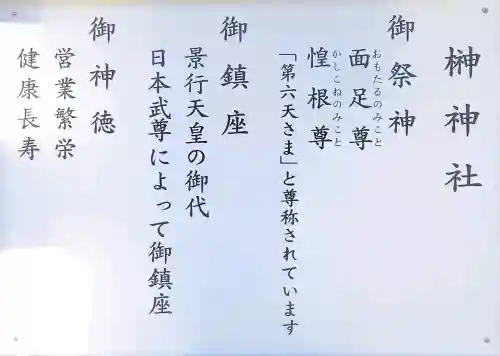 榊神社
御祭神
面足尊
おもたるのみこと
惶根尊
かしこねのみこと
「第六天さま」と尊称されています
御鎮座
景行天皇の御代
日本武尊によって御鎮座
御神徳
営業繁栄
健康長寿